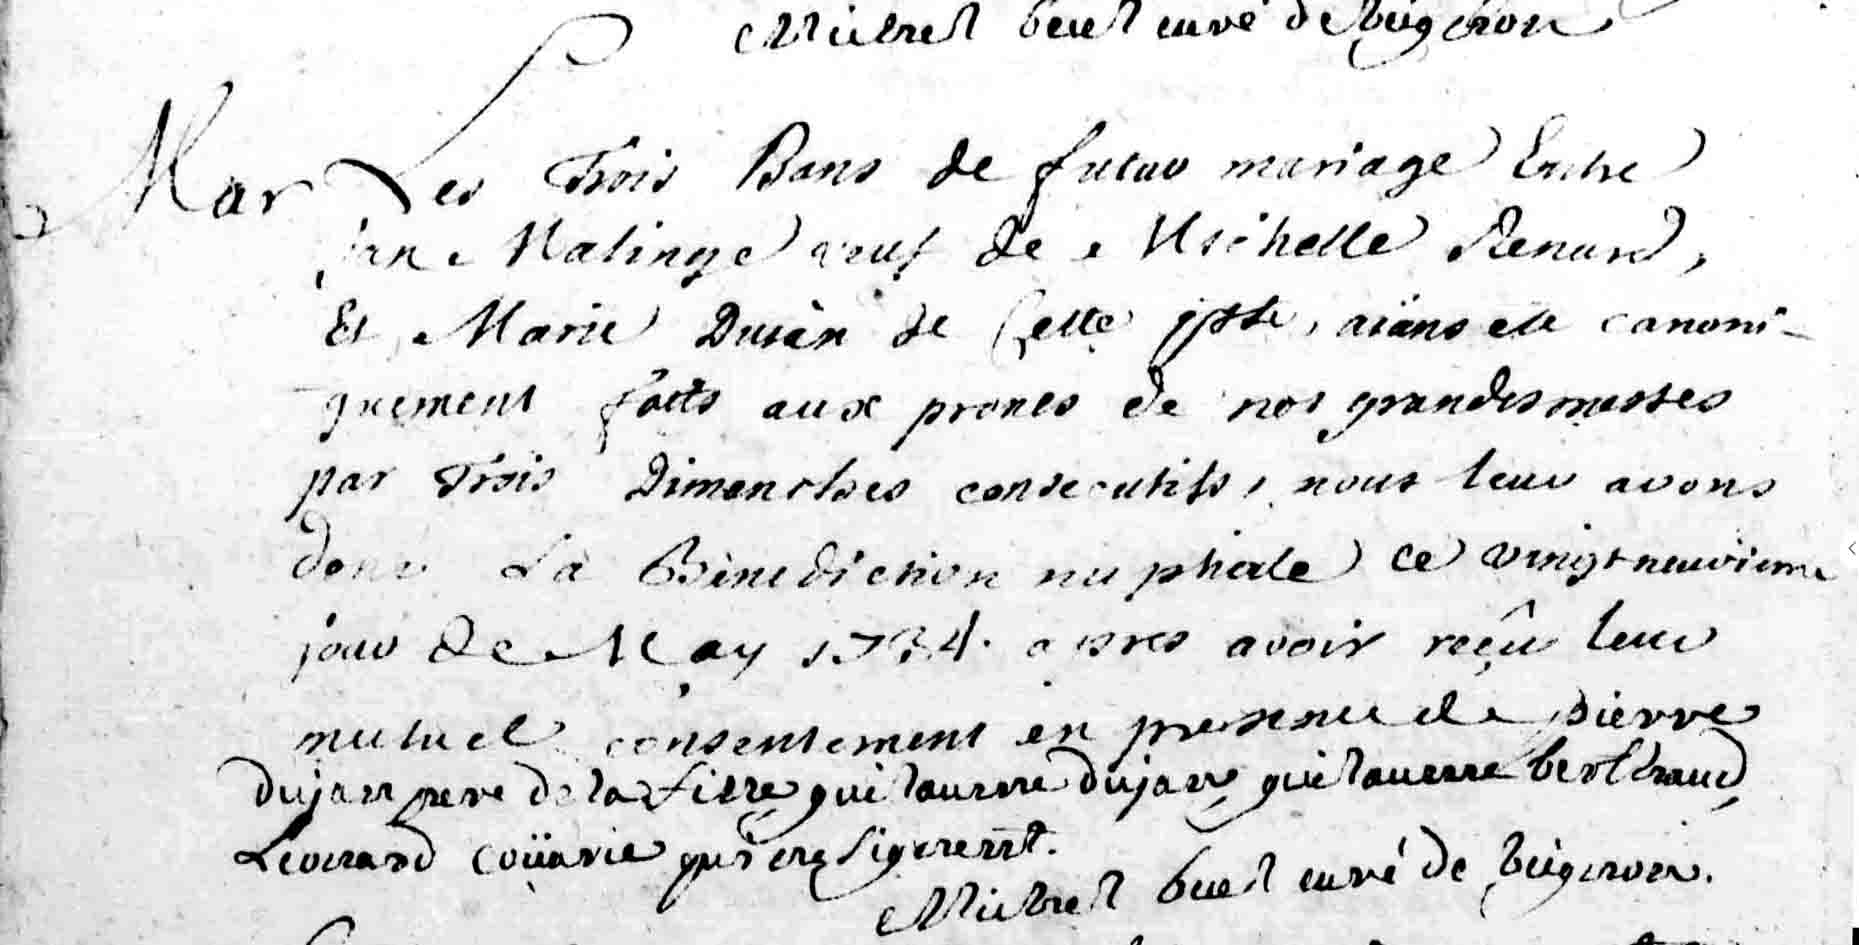 Michel buet curé de bugnon
Mar Les Trois Bans de futur mariage Entre
Jan Malinge veuf de Michelle Renard,
Et Marie Dujan de Cette psse, aians ete canoni-
quement faits aux prones de nos grandes messes
par Trois Dimenches consecutifs, nous leur avons
doné La Bénédiction nuptiale ce vingt neuvieme
jour de May 1734. apres avoir reçû leur
mutuel consentement en presence de pierre
dujan pere de la fille guilaume dujan guilaume bertheaud
Leonard coüarie qui ne signerent.
Michel buet curé de